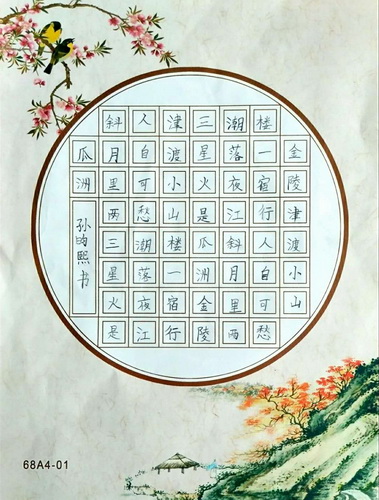 金陵津渡小山
楼一宿行人自可愁
潮落夜江斜月里两
三星火是瓜洲金陵
津渡小山楼一宿行
人自可愁潮落夜江
斜月里两三星火是
瓜洲
孙昀熙书
68A4-01